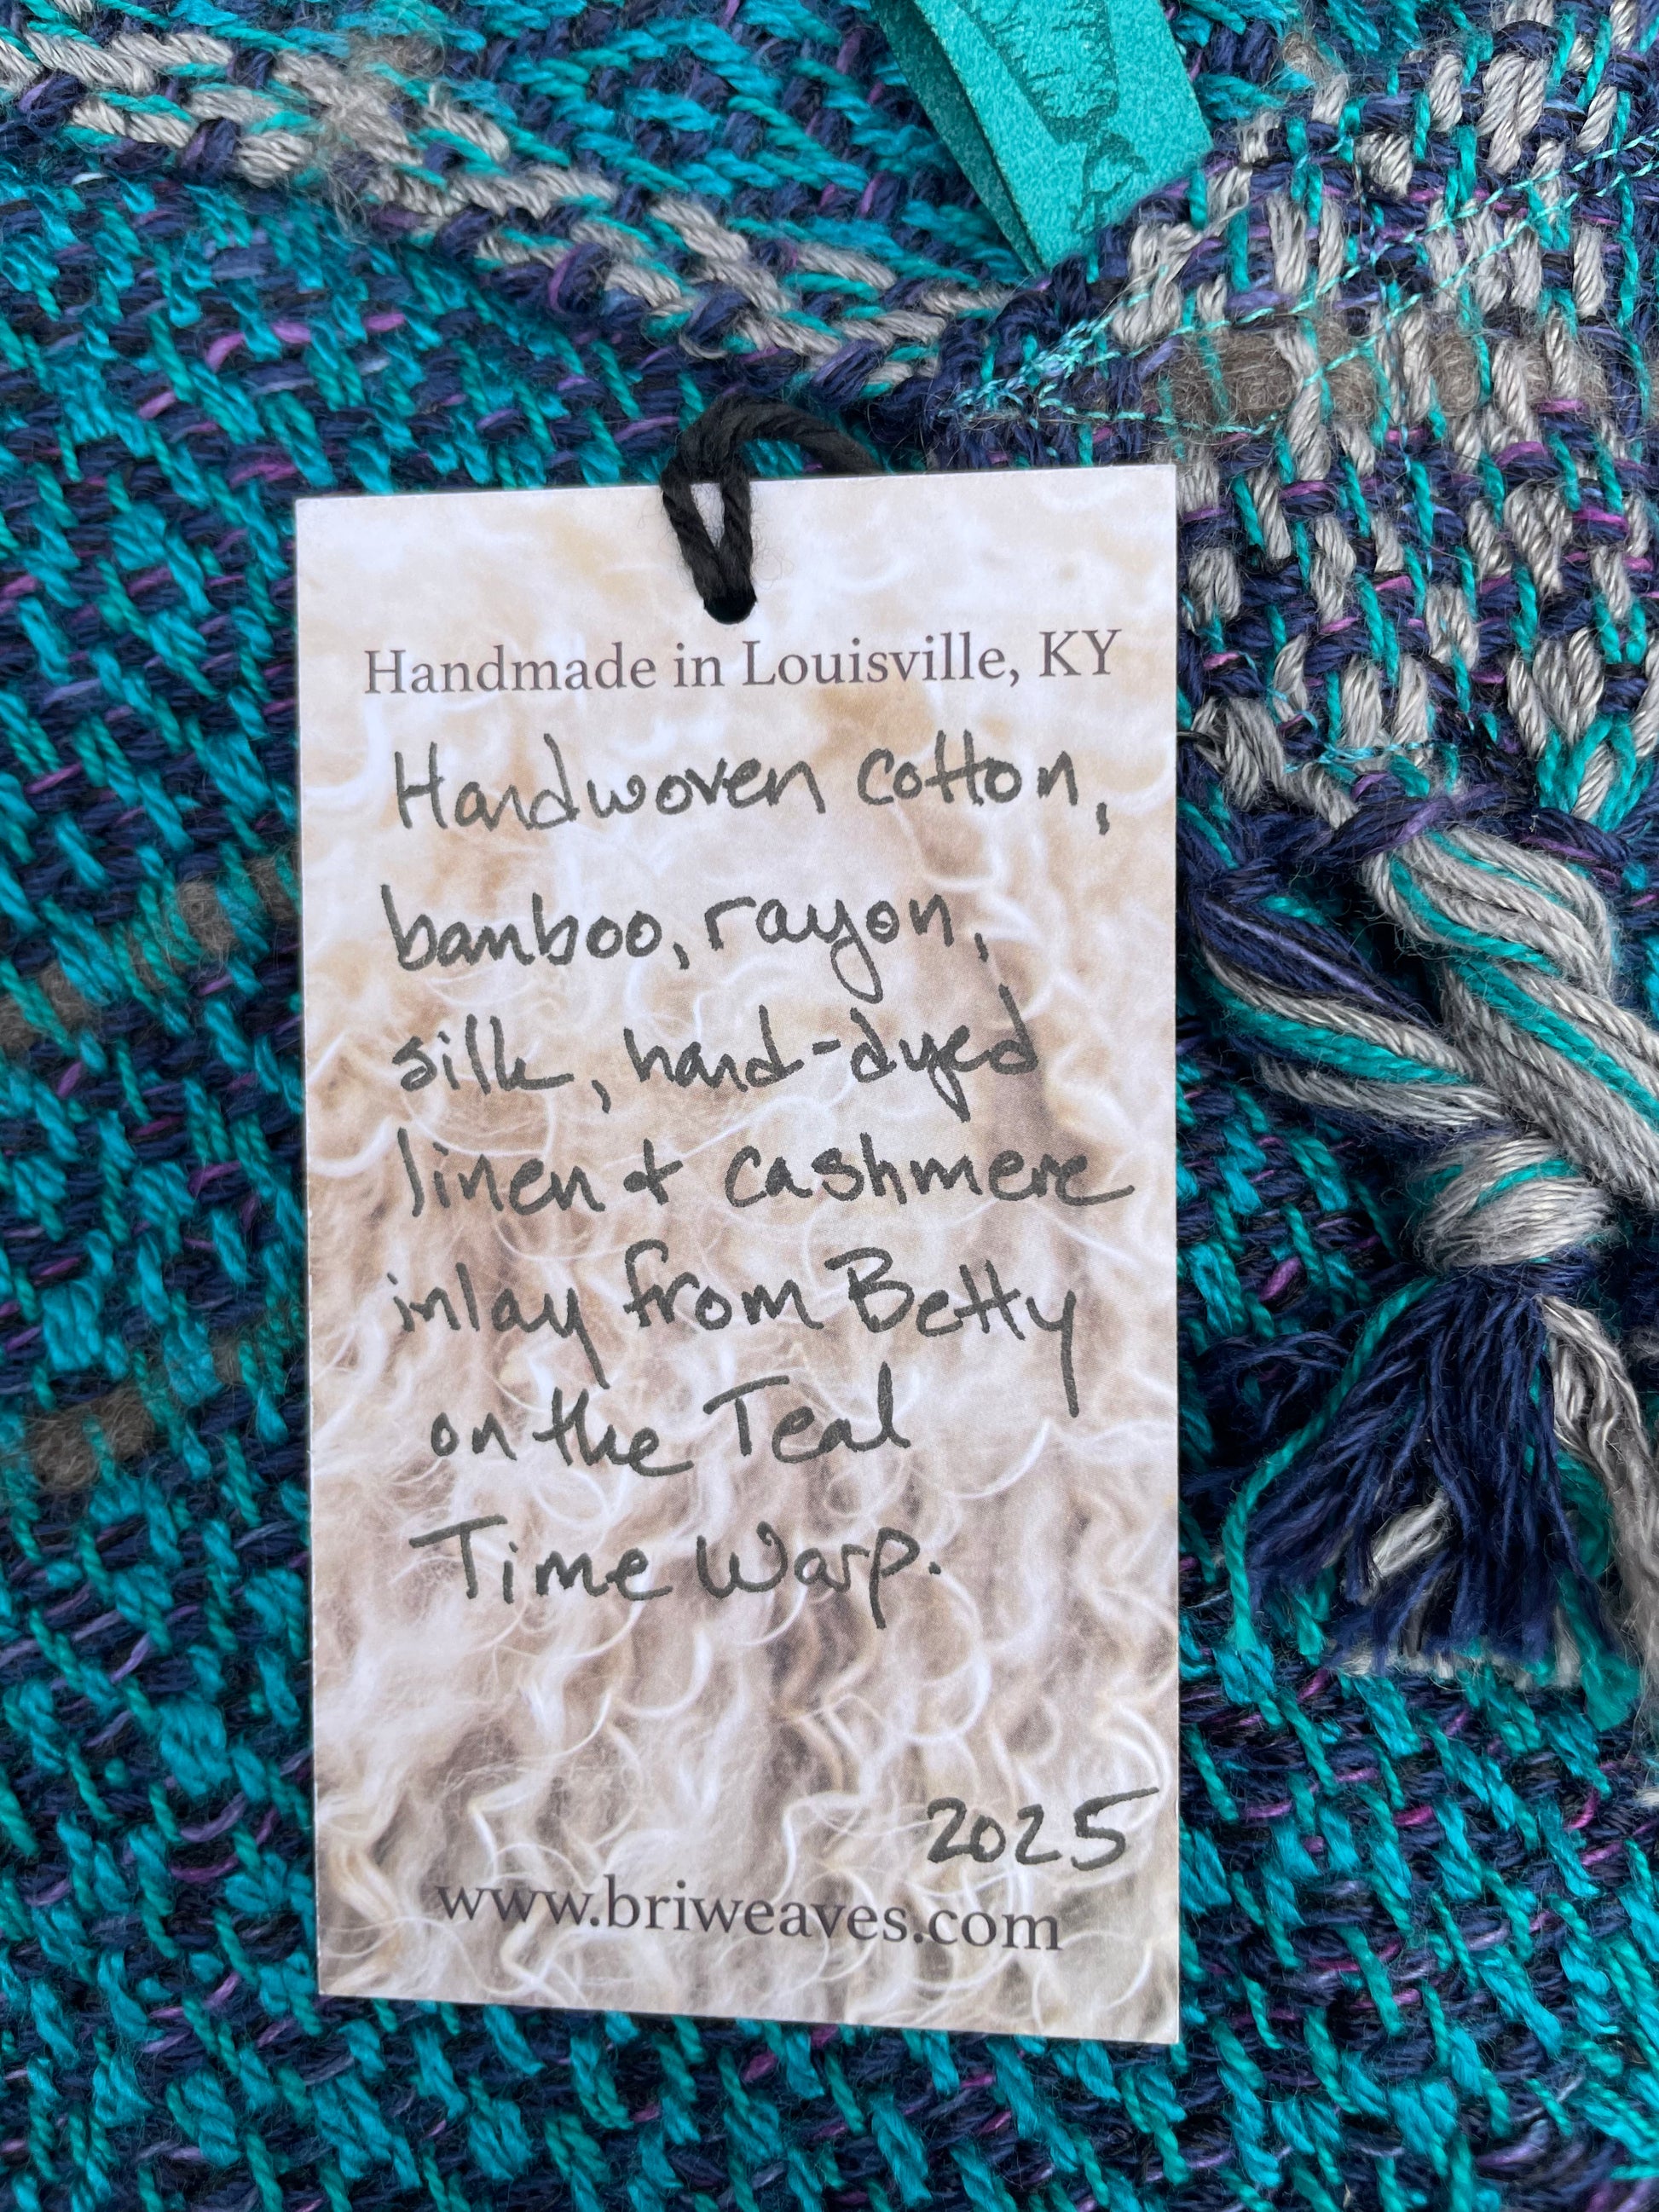 Handmade in Louisville, KY
Handwoven cotton,
bamboo, rayon,
silk, hand-dyed
linen + cashmere
inlay from Betty
on the Teal
Time Warp.
2025
www.briweaves.com